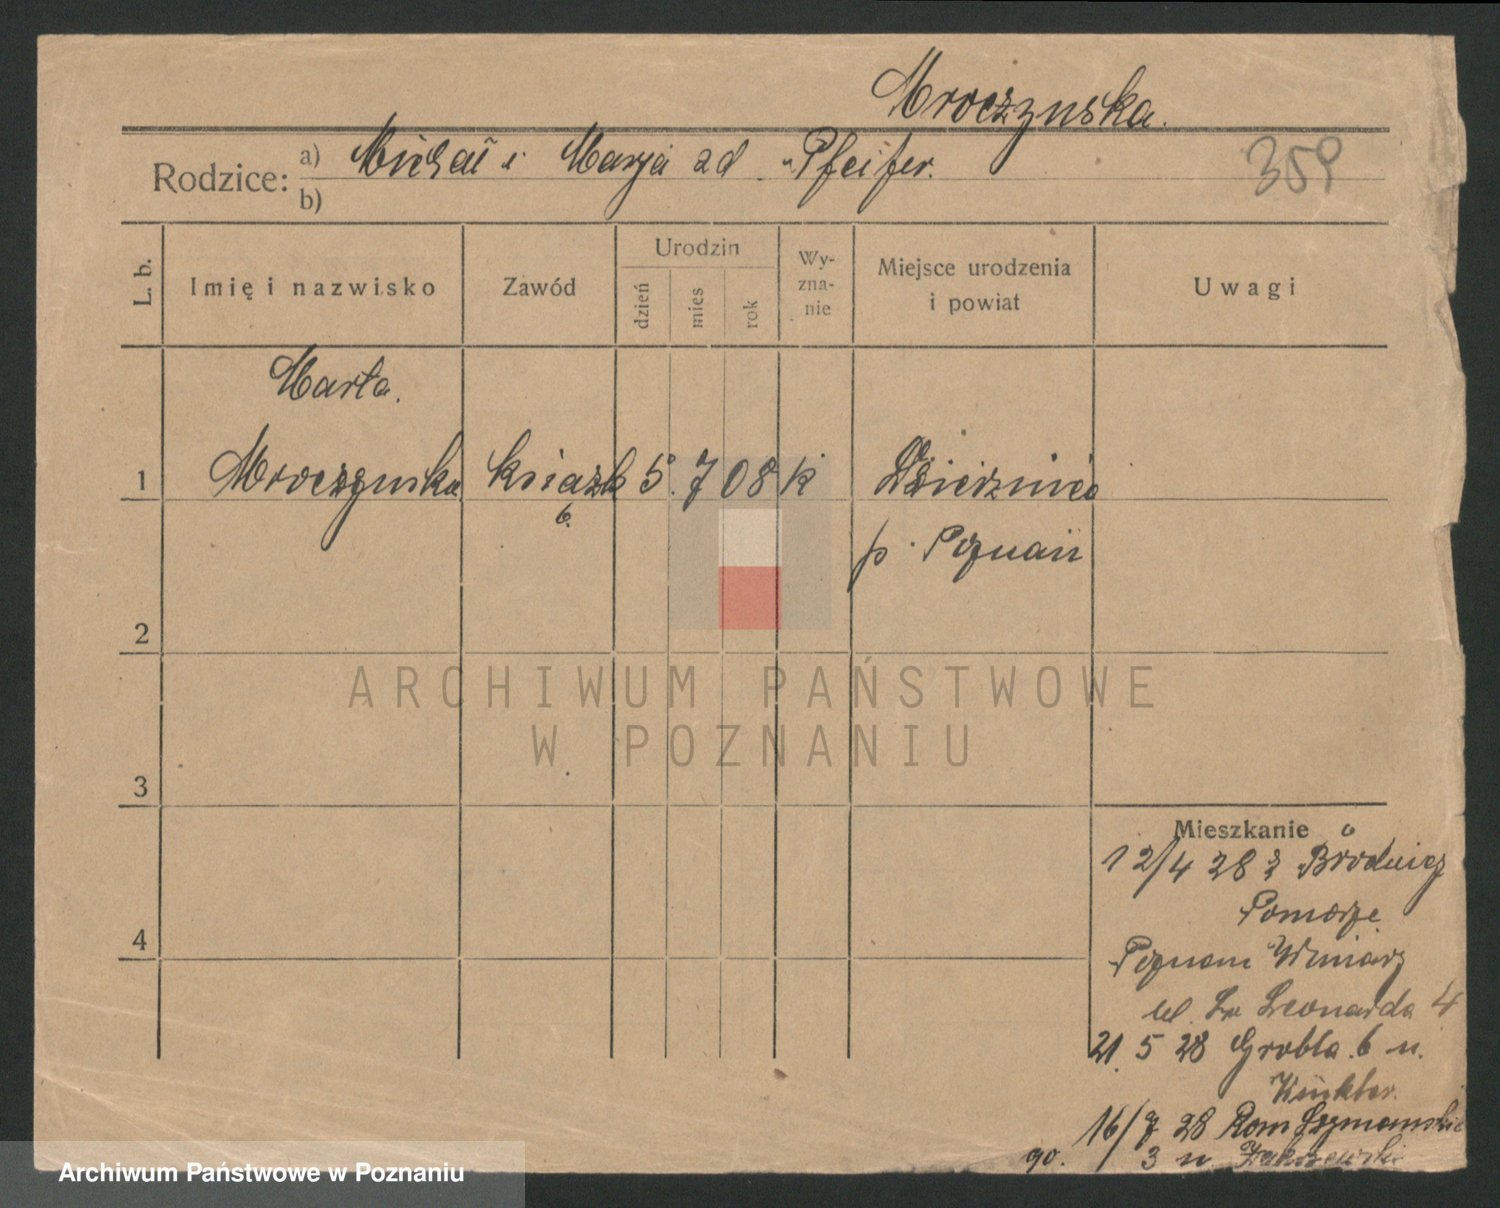 Mroczynska.
Rodzice: a) Michał i Marja zd. Pfeifer.
b)
359
L. b. Imię i nazwisko Zawód Urodzin dzień mies rok Wyznanie Miejsce urodzenia i powiat Uwagi
Marta.
1 Mroczynska 5. 7 08 k
b.
p. Poznań
2
ARCHIWUM PAŃSTWOWE
W POZNANIU
3
Mieszkanie
12/4 28 z Brodnicy
Pomorze
Poznań Winiary
ul. Św Leonarda 4
21. 5 28 Grobla 6 u.
16/7 28 Rom Szymanskie
go. 3 u.
4
Archiwum Państwowe w Poznaniu